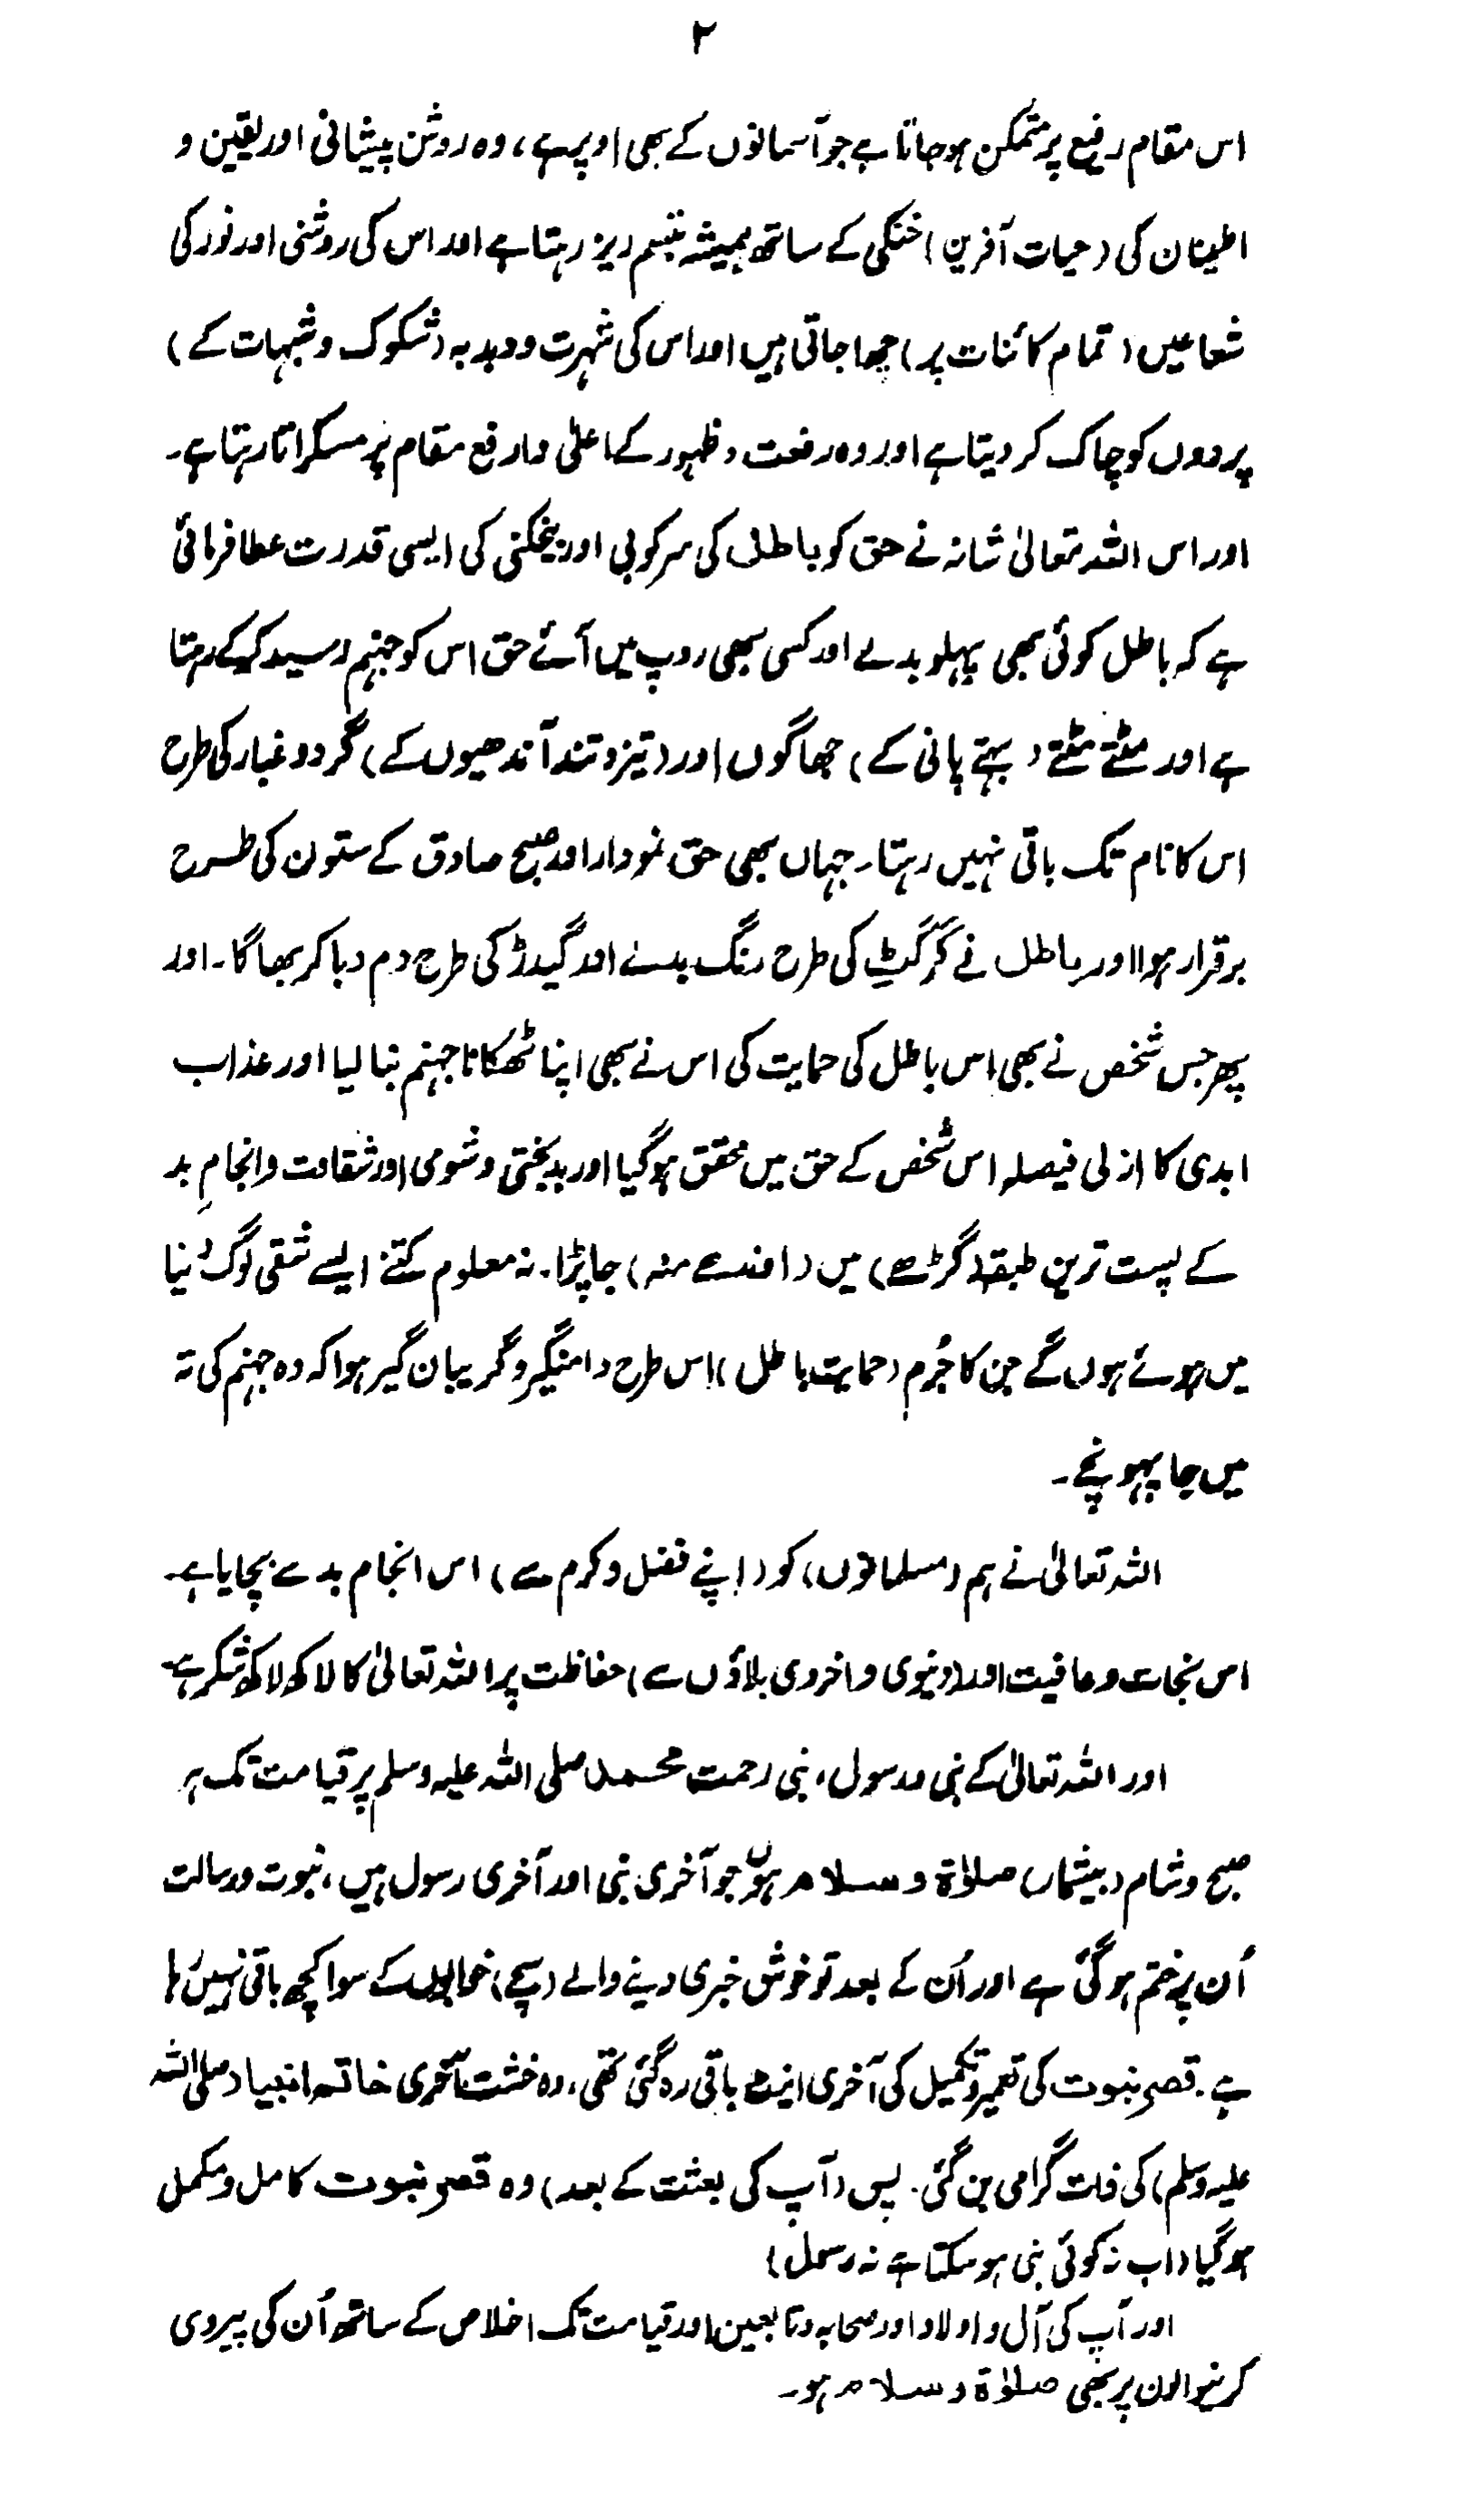 ۲
اس مقام رفیع پر متمکن ہوجاتا ہے جو آسمانوں کے بھی اوپر ہے، وہ روشن پیشانی اور یقین و
اطمینان کی (حیات آفرین) خنکی کے ساتھ ہمیشہ تبسم ریز رہتا ہے اور اس کی روشنی اور نور کی
شعاعیں (تمام کائنات پر) چھا جاتی ہیں اور اس کی شہرت و دبدبہ (شکوک و شبہات کے)
پردوں کو چاک کر دیتا ہے اور وہ رفعت و ظہور کے اعلیٰ و ارفع مقام پر مسکراتا رہتا ہے۔
اور اس اللہ تعالیٰ شانہ نے حق کو باطل کی سرکوبی اور بیخکنی کی ایسی قدرت عطا فرمائی
ہے کہ باطل کوئی بھی پہلو بدلے اور کسی بھی روپ میں آئے حق اس کو جہنم رسید کرکے رہتا
ہے اور مٹتے مٹتے (بہتے پانی کے) جھاگوں اور (تیز و تند آندھیوں کے) گرد و غبار کی طرح
اس کا نام تک باقی نہیں رہتا۔ جہاں بھی حق نمودار اور صبح صادق کے ستون کی طرح
برقرار ہوا اور باطل نے گرگٹ کی طرح رنگ بدلے اور گیدڑ کی طرح دم دبا کر بھاگا۔ اور
پھر جس شخص نے بھی اس باطل کی حمایت کی اس نے بھی اپنا ٹھکانا جہنم بنا لیا اور عذاب
ابدی کا ازلی فیصلہ اس شخص کے حق میں محقق ہوگیا اور بدبختی و شومی اور شقاوت و انجامِ بد
کے پست ترین طبقہ (گڑھے) میں (اوندھے منہ) جا پڑا۔ نہ معلوم کتنے ایسے شقی لوگ دُنیا
میں ہوئے ہوں گے جن کا جُرم (حمایت باطل) اس طرح دامنگیر و گریبان گیر ہوا کہ وہ جہنم کی تہ
میں جا پہونچے۔
اللہ تعالیٰ نے ہم (مسلمانوں) کو (اپنے فضل و کرم سے) اس انجام بد سے بچایا ہے۔
اس نجات و عافیت اور (دنیوی و اخروی بلاؤں سے) حفاظت پر اللہ تعالیٰ کا لاکھ لاکھ شکر ہے۔
اور اللہ تعالیٰ کے نبی و رسول، نبی رحمت محمد صلی اللہ علیہ وسلم پر قیامت تک ہر
صبح و شام (بیشمار) صلوٰۃ و سلام ہوں جو آخری نبی اور آخری رسول ہیں، نبوت و رسالت
اُن پر ختم ہوگئی ہے اور اُن کے بعد تو خوش خبری دینے والے (سچے) خوابوں کے سوا کچھ باقی نہیں رہا
ہے۔ قصرِ نبوت کی تعمیر و تکمیل کی آخری اینٹ باقی رہ گئی تھی، وہ خشت آخری خاتم انبیاء (صلی اللہ
علیہ وسلم) کی ذات گرامی بن گئی۔ پس (آپ کی بعثت کے بعد) وہ قصرِ نبوت کامل و مکمل
ہوگیا (اب نہ کوئی نبی ہو سکتا ہے نہ رسول)
اور آپ کی آل و اولاد اور صحابہ و تابعین اور قیامت تک اخلاص کے ساتھ اُن کی پیروی
کرنیوالوں پر بھی صلوٰۃ و سلام ہو۔